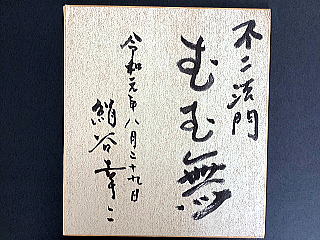 不二法門
むむ無
令和元年八月二十九日
絹谷幸二